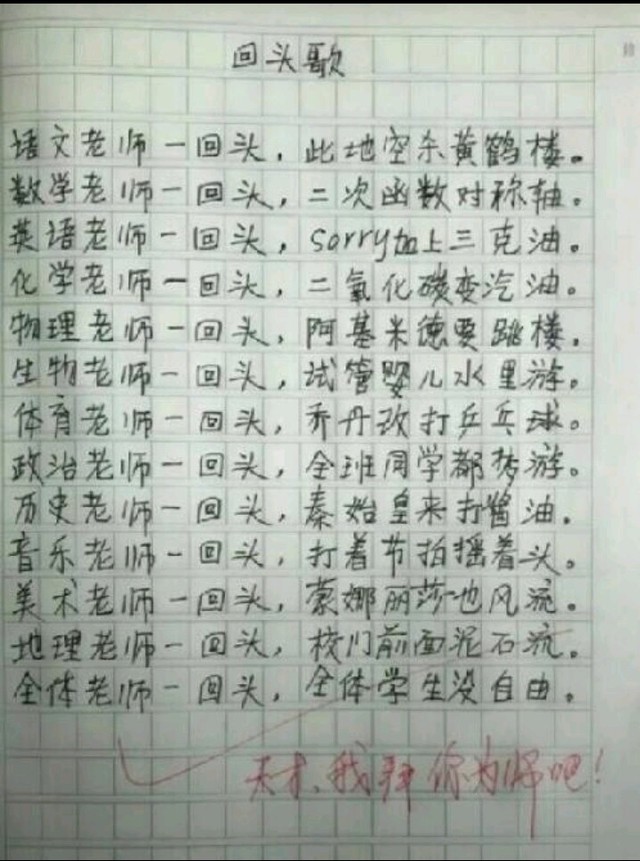 回头歌
语文老师一回头，此地空余黄鹤楼。
数学老师一回头，二次函数对称轴。
英语老师一回头，sorry加上三克油。
化学老师一回头，二氧化碳变汽油。
物理老师一回头，阿基米德要跳楼。
生物老师一回头，试管婴儿水里游。
体育老师一回头，乔丹改打乒乓球。
政治老师一回头，全班同学都梦游。
历史老师一回头，秦始皇来打酱油。
音乐老师一回头，打着节拍摇着头。
美术老师一回头，蒙娜丽莎也风流。
地理老师一回头，校门前面泥石流。
全体老师一回头，全体学生没自由。
天才、我拜你为师吧！